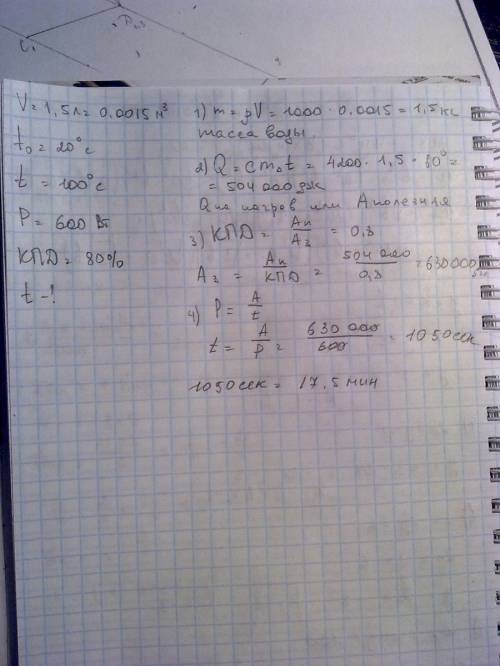 V = 1,5л = 0,0015 м³
t₀ = 20°с
t = 100°с
P = 600 Вт
КПД = 80%
t - !
1) m = ρV = 1000 · 0,0015 = 1,5 кг
масса воды.
2) Q = cm₀t = 4200 · 1,5 · 80° =
= 504 000 дж
Q на нагрев или A полезная
3) КПД = Aп/Aз = 0,8
Aз = Aп/КПД = 504 000/0,8 = 630000
4) P = A/t
t = A/P = 630 000/600 = 1050 сек
1050 сек = 17,5 мин